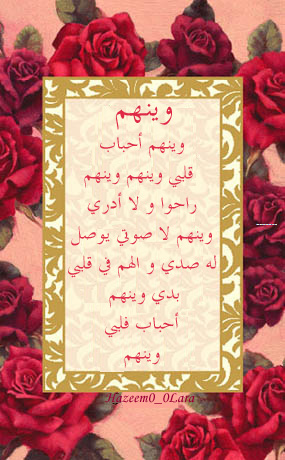 وينهم
وينهم أحباب
قلبي وينهم وينهم
راحوا و لا أدري
وينهم لا صوتي يوصل
له صدي و الهم في قلبي
بدي وينهم
أحباب قلبي
وينهم
Hazeem0_0Lara